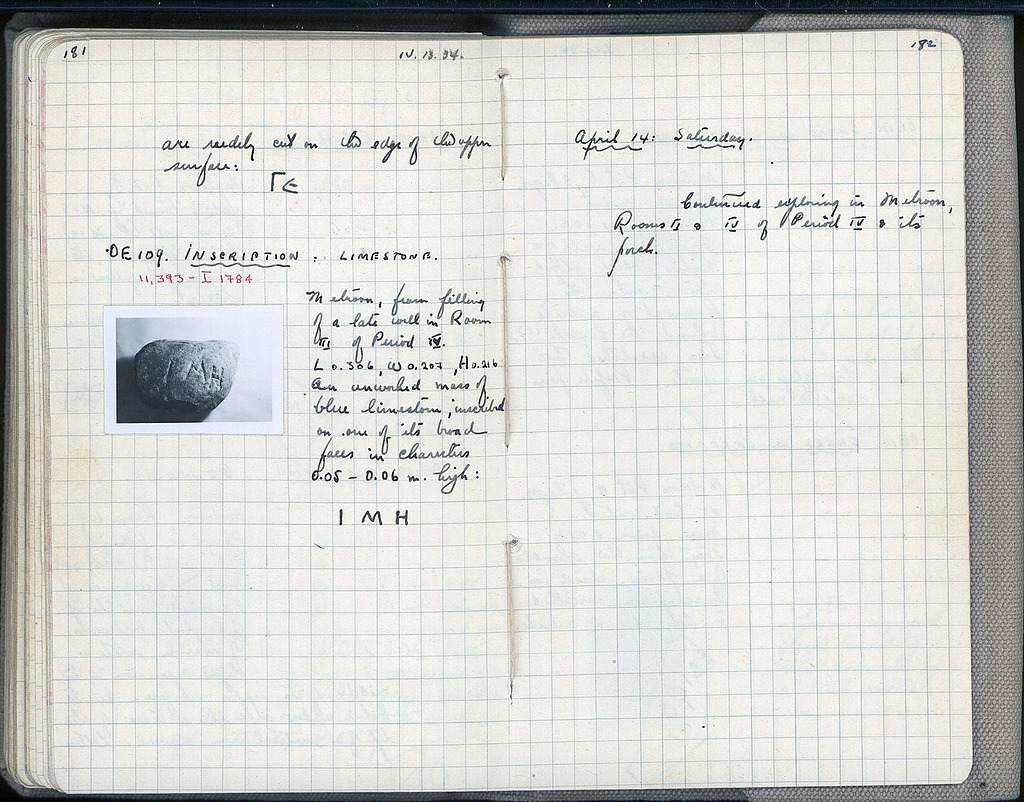 181
IV. 13. 34.
are rudely cut on the edge of the upper
surface:
ΓΕ
DE 109. INSCRIPTION : LIMESTONE.
11,393 - I 1784
Metroon, from filling
of a late well in Room
III of Period IV.
L 0.306, W 0.207, H 0.216
An unworked mass of
blue limestone, inscribed
on one of its broad
faces in characters
0.05 - 0.06 m. high:
I M H
182
April 14: Saturday.
Continued exploring in Metroon,
Rooms II & IV of Period IV & its
porch.